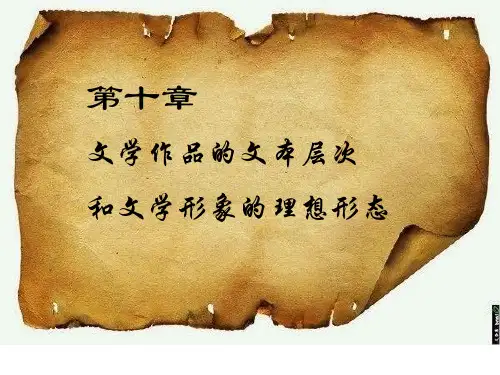 第十章
文学作品的文本层次
和文学形象的理想形态